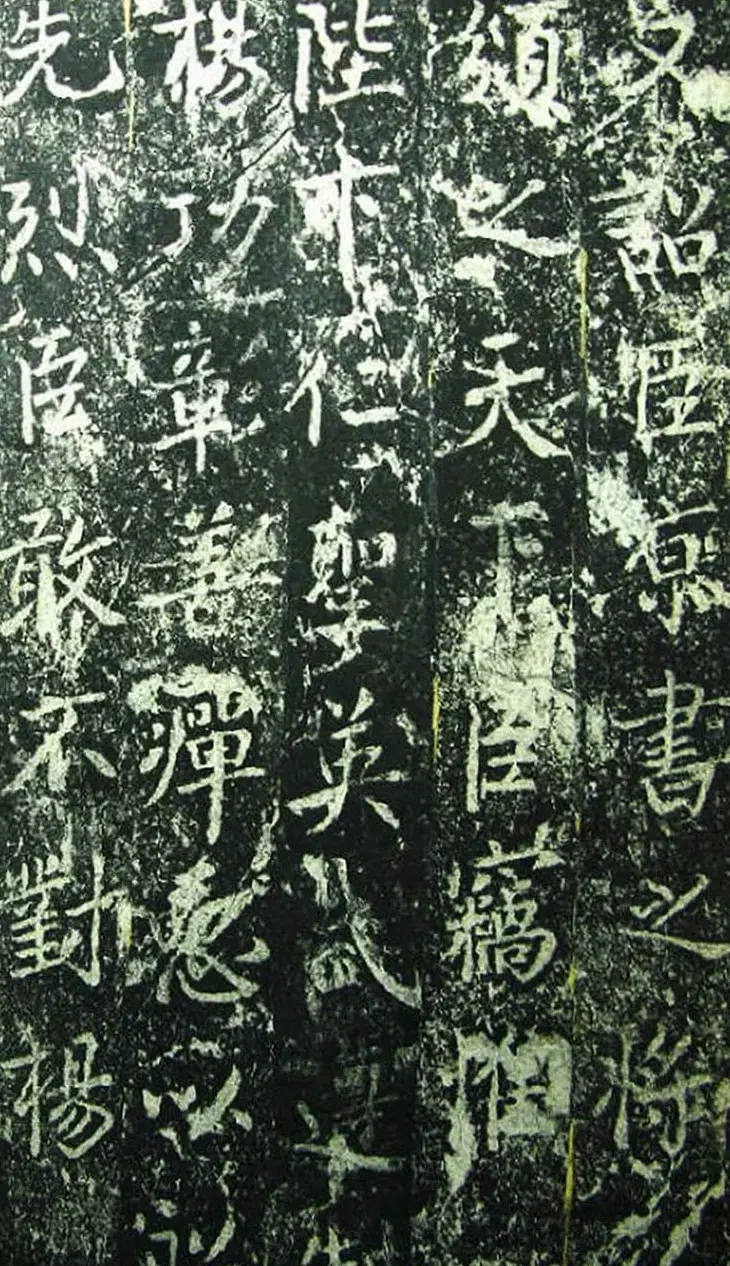 又詔臣京書之將
頒之天下臣竊惟
陛下仁聖英武遵
揚功章善癉惡以
先烈臣敢不對揚